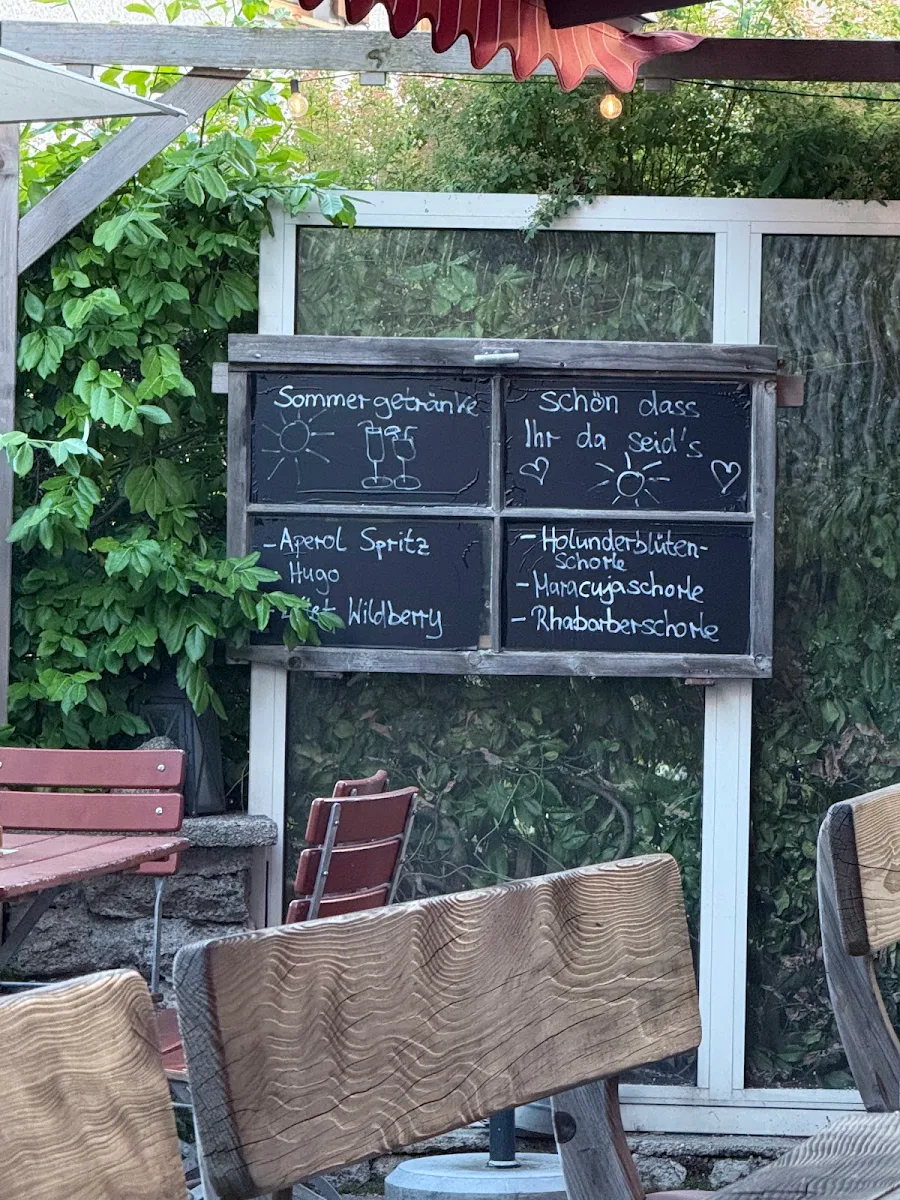 Sommergetränke
schön dass
Ihr da seid's
- Aperol Spritz
Hugo
Wildberry
- Holunderblüten-
schorle
- Maracujaschorle
- Rhabarberschorle